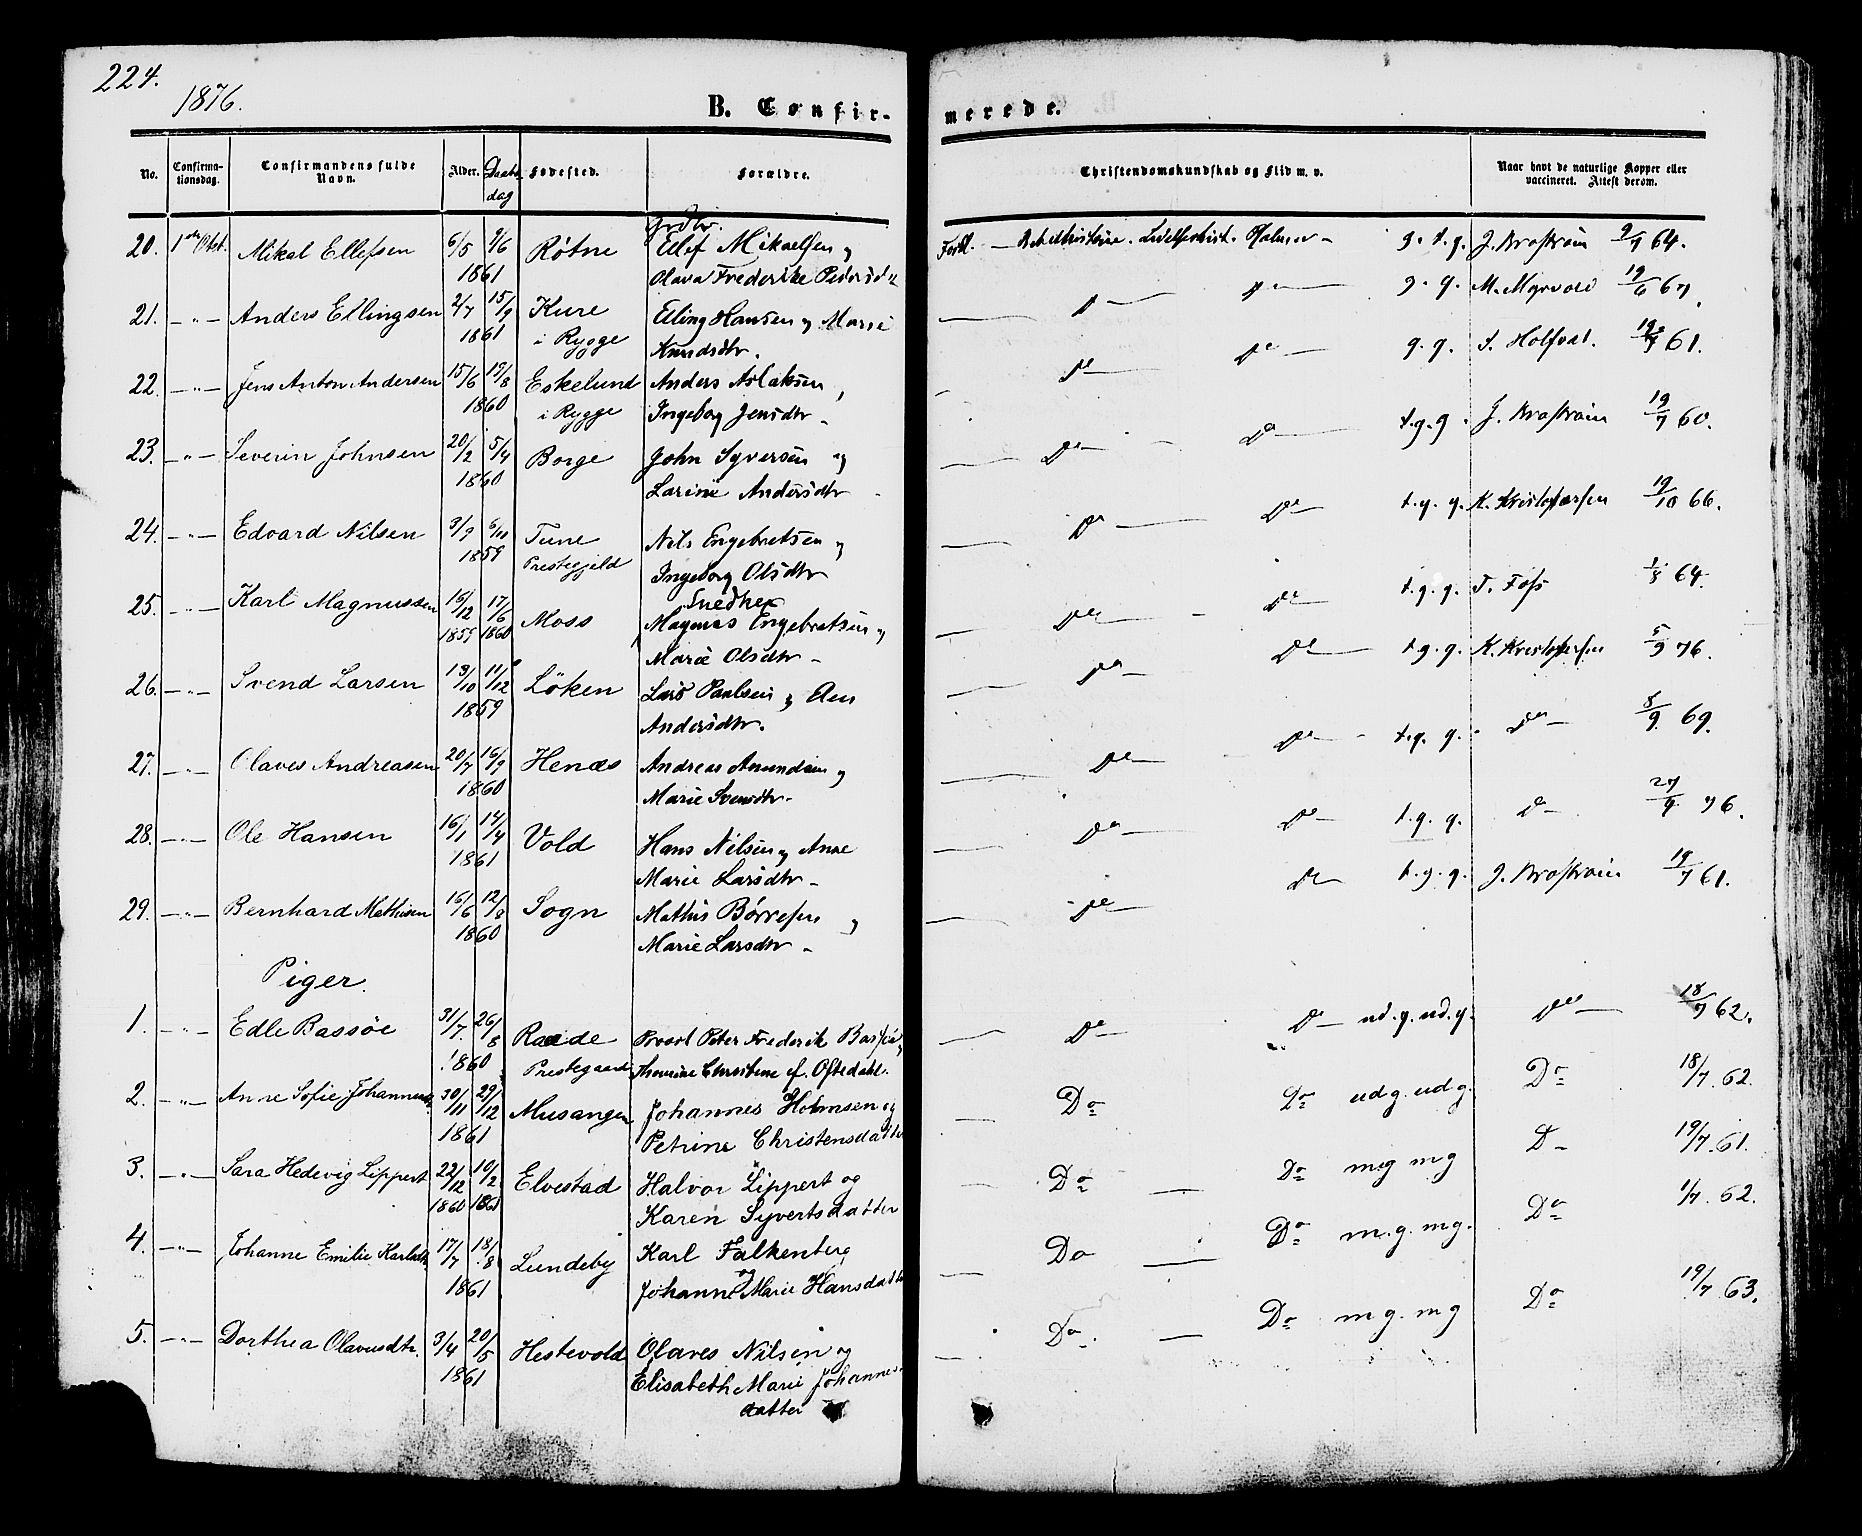 224.
1876.
B. Confir-
merede.
No. Confirma-tionsdag. Confirmandens fulde Navn. Alder. Daabs-dag Fødested. Forældre. Christendomskundskab og Flid m. v. Naar havt de naturlige Kopper eller vaccineret. Attest derom.
20. Mikal Ellefsen 6/5 9/6 1861 Røtne Ellef Mikaelsen og
Olava Frederikke
t. g. 64.
21. —"— Anders Ellingsen 2/7 15/9 1861 Kure i Rygge Elling Hansen og Marie
Knudsdtr.
g. g. M. Myrvold 19/6 67.
22. —"— Jens Anton Andersen 15/6 19/8 1860 Eskelund i Rygge Anders Aslaksen,
Ingeborg Jensdtr
g. g. 61.
23. —"— Severin Johnsen 20/2 5/4 1860 Borge John Syversen og
Larine Andersdtr
t. g. g. 19/7 60.
24. —"— Edvard Nilsen 3/9 6/11 1859 Tune Prestegjeld Nils Engebretsen og
Ingeborg Olsdtr
t. g. g. K. Kristofersen 19/10 66.
25. —"— Karl Magnussen 15/12 1859 17/6 1860 Moss Snedker
Magnus Engebretsen og
Marie Olsdtr
t. g. g. T. Foss 64.
26. —"— Svend Larsen 13/10 11/12 1859 Löken Lars Paulsen og
Andersdtr.
t. g. g. K. Kristofersen 5/9 76.
27. —"— Olaves Andreasen 20/7 16/9 1860 Henæs Andreas Amundsen og
Marie Svensdtr
t. g. g. Do 8/9 69.
28. —"— Ole Hansen 16/1 14/4 1861 Vold Hans Nilsen og Anne
Marie Larsdtr
t. g. g. Do 27/9 76.
29. —"— Bernhard Mathisen 16/6 12/8 1860 Sogn Mathis Börresen og
Marie Larsdtr
t. g. g. 19/7 61.
Piger.
1. —"— Edle Bassöe 31/7 26/8 1860 Raade Prestegaard Provst Peter Frederik Bassöe
Christine f. Oftedahl.
Do Do ud. g. ud. g. Do 18/7 62.
2. —"— Anne Sofie 30/11 29/12 1861 Musangen Johannes Holmsen og
Petrine Christensdatter
Do Do ud g. ud g. Do 18/7. 62.
3. —"— Sara Hedevig Lippert 22/12 1860 10/2 1861 Elvestad Halvor Lippert og
Karen Syvertsdatter
Do Do m g m g D 19/7. 61.
4. —"— Johanne Emilie 17/7 18/8 1861 Lundeby Karl Falkenberg
og Johanne Marie Hansdatter
Do Do m. g. m g. Do 1/7. 62.
5. —"— Dorthea Olavesdtr. 3/4 20/5 1861 Hestevold Olaves Nilsen og
Elisabeth Marie Johannes
datter
Do. Do m g. m g Do 19/7 63.